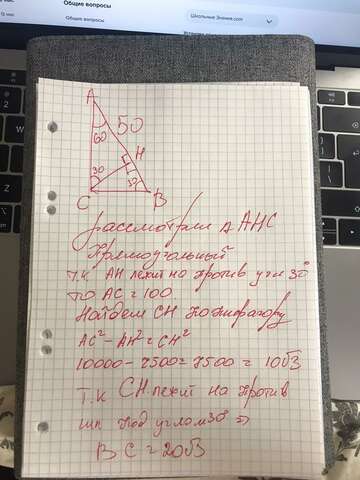 Общие вопросы
Школьные Знания.com
Общие вопросы
A
60
50
H
30
30
C
B
рассмотрим △ AHC
Прямоугольный
т.к AH лежит на против угла 30°
то AC = 100
Найдем CH по пифагору
AC² - AH² = CH²
10000 - 2500 = 7500 = 10√3
Т.К CH лежит на против
под углом 30° ⇒
BC = 20√3